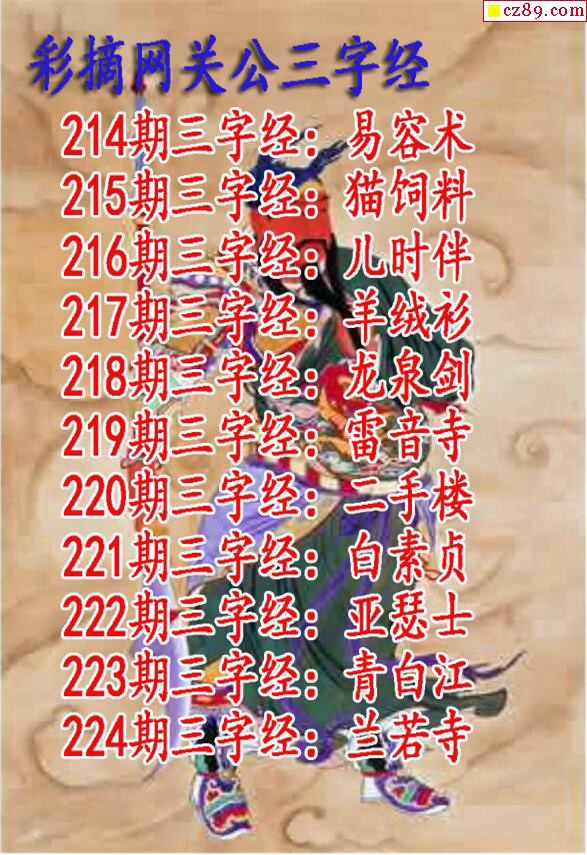 cz89.com
彩摘网关公三字经
214期三字经：易容术
215期三字经：猫饲料
216期三字经：儿时伴
217期三字经：羊绒衫
218期三字经：龙泉剑
219期三字经：雷音寺
220期三字经：二手楼
221期三字经：白素贞
222期三字经：亚瑟士
223期三字经：青白江
224期三字经：兰若寺